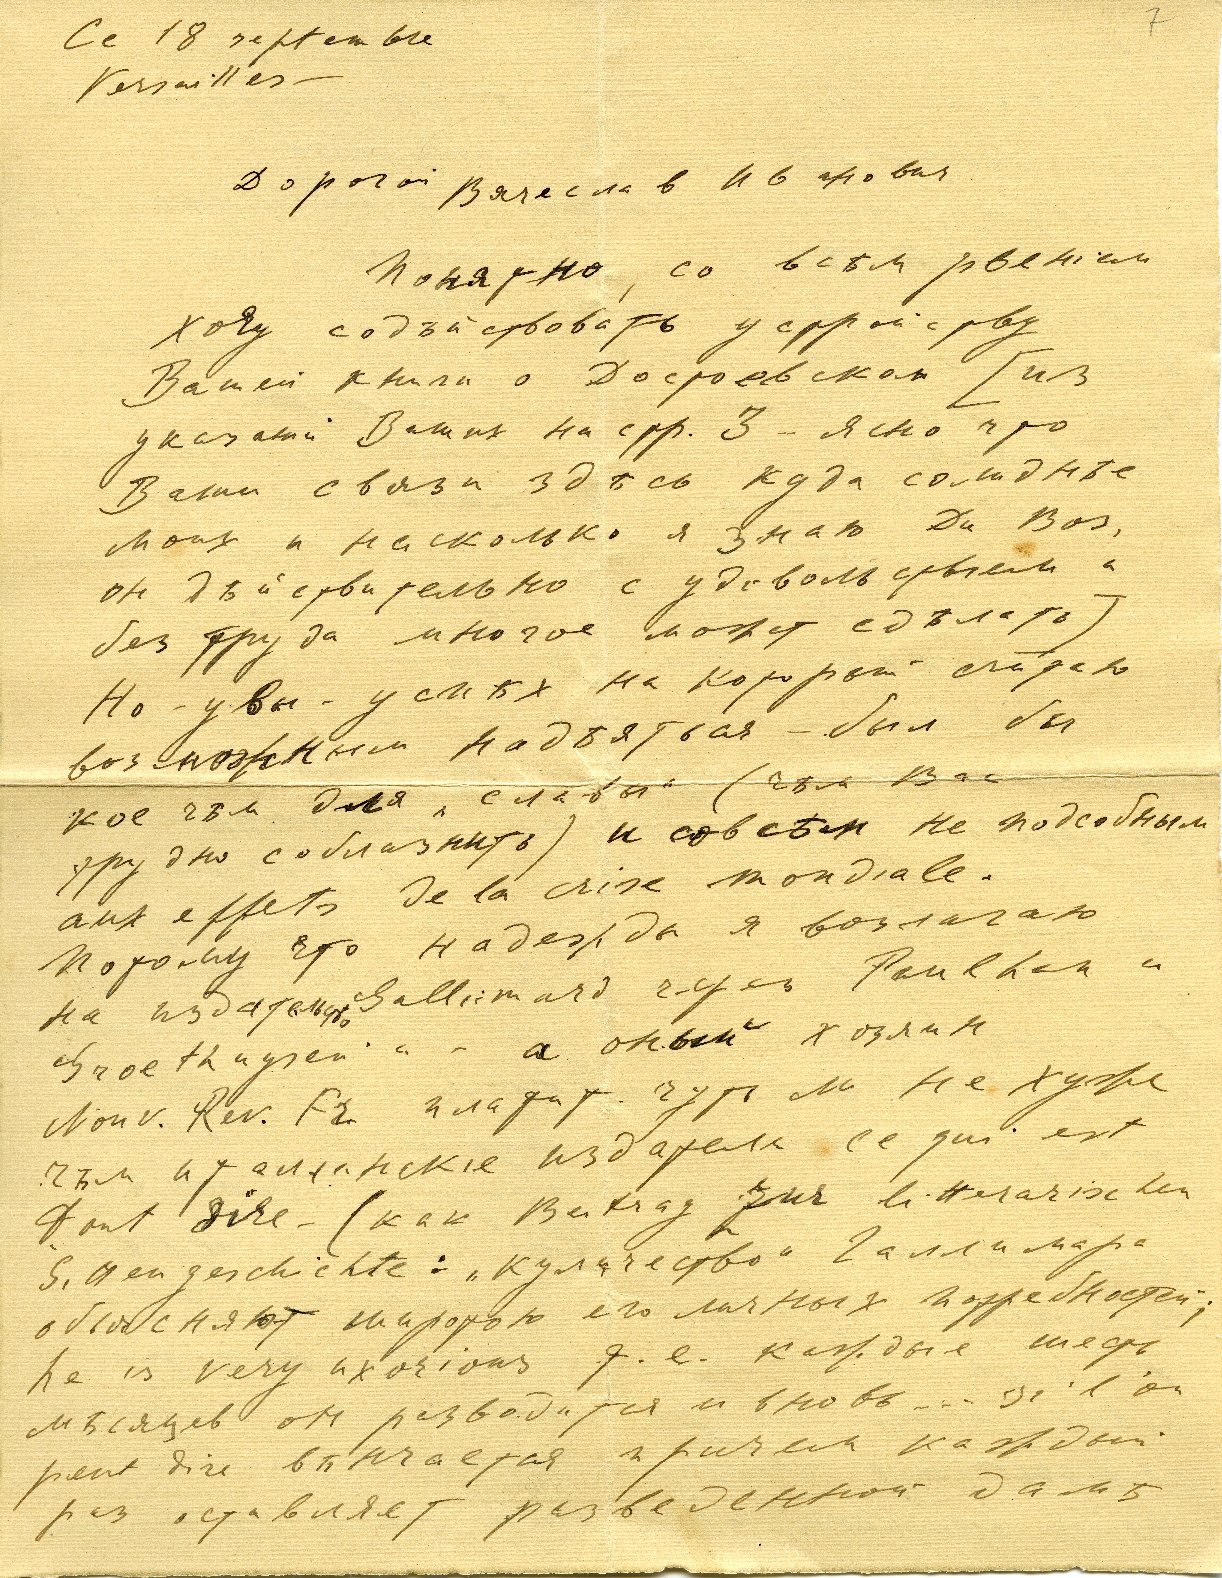 7
Ce 18 septembre
Versailles —
Дорогой Вячеслав Иванович
Понятно, со всѣм рвенiем
хочу содѣйствовать устройству
Вашей книги о Достоевском [из
указанiй Ваших на стр. 3 — ясно что
Ваши связи здѣсь куда солиднѣе
моих и насколько я знаю Du Bos,
он дѣйствительно с удовольствiем и
без труда многое может сдѣлать]
Но — увы — успѣх на который считаю
возможным надѣяться — был бы
кое чѣм для „славы“ (чѣм Вас
трудно соблазнить) и совсѣм не подсобным
aux effets de la crise mondiale.
Потому что надежды я возлагаю
на издательство Gallimard через Paulhan и
Groethuysen'а — а оный хозяин
Nouv. Rev. Fr. платит чуть ли не хуже
чѣм италианскiе издатели ce qui est
tout dire — (как Beitrag zur litterarischen
Sittengeschichte: „кулачество“ Галлимара
объясняют широтою его личных потребностей;
he is very uxorious т. е. каждые шесть
мѣсяцев он разводится и вновь ... si l'on
peut dire вѣнчается причем каждый
раз оставляет разведенной дамѣ